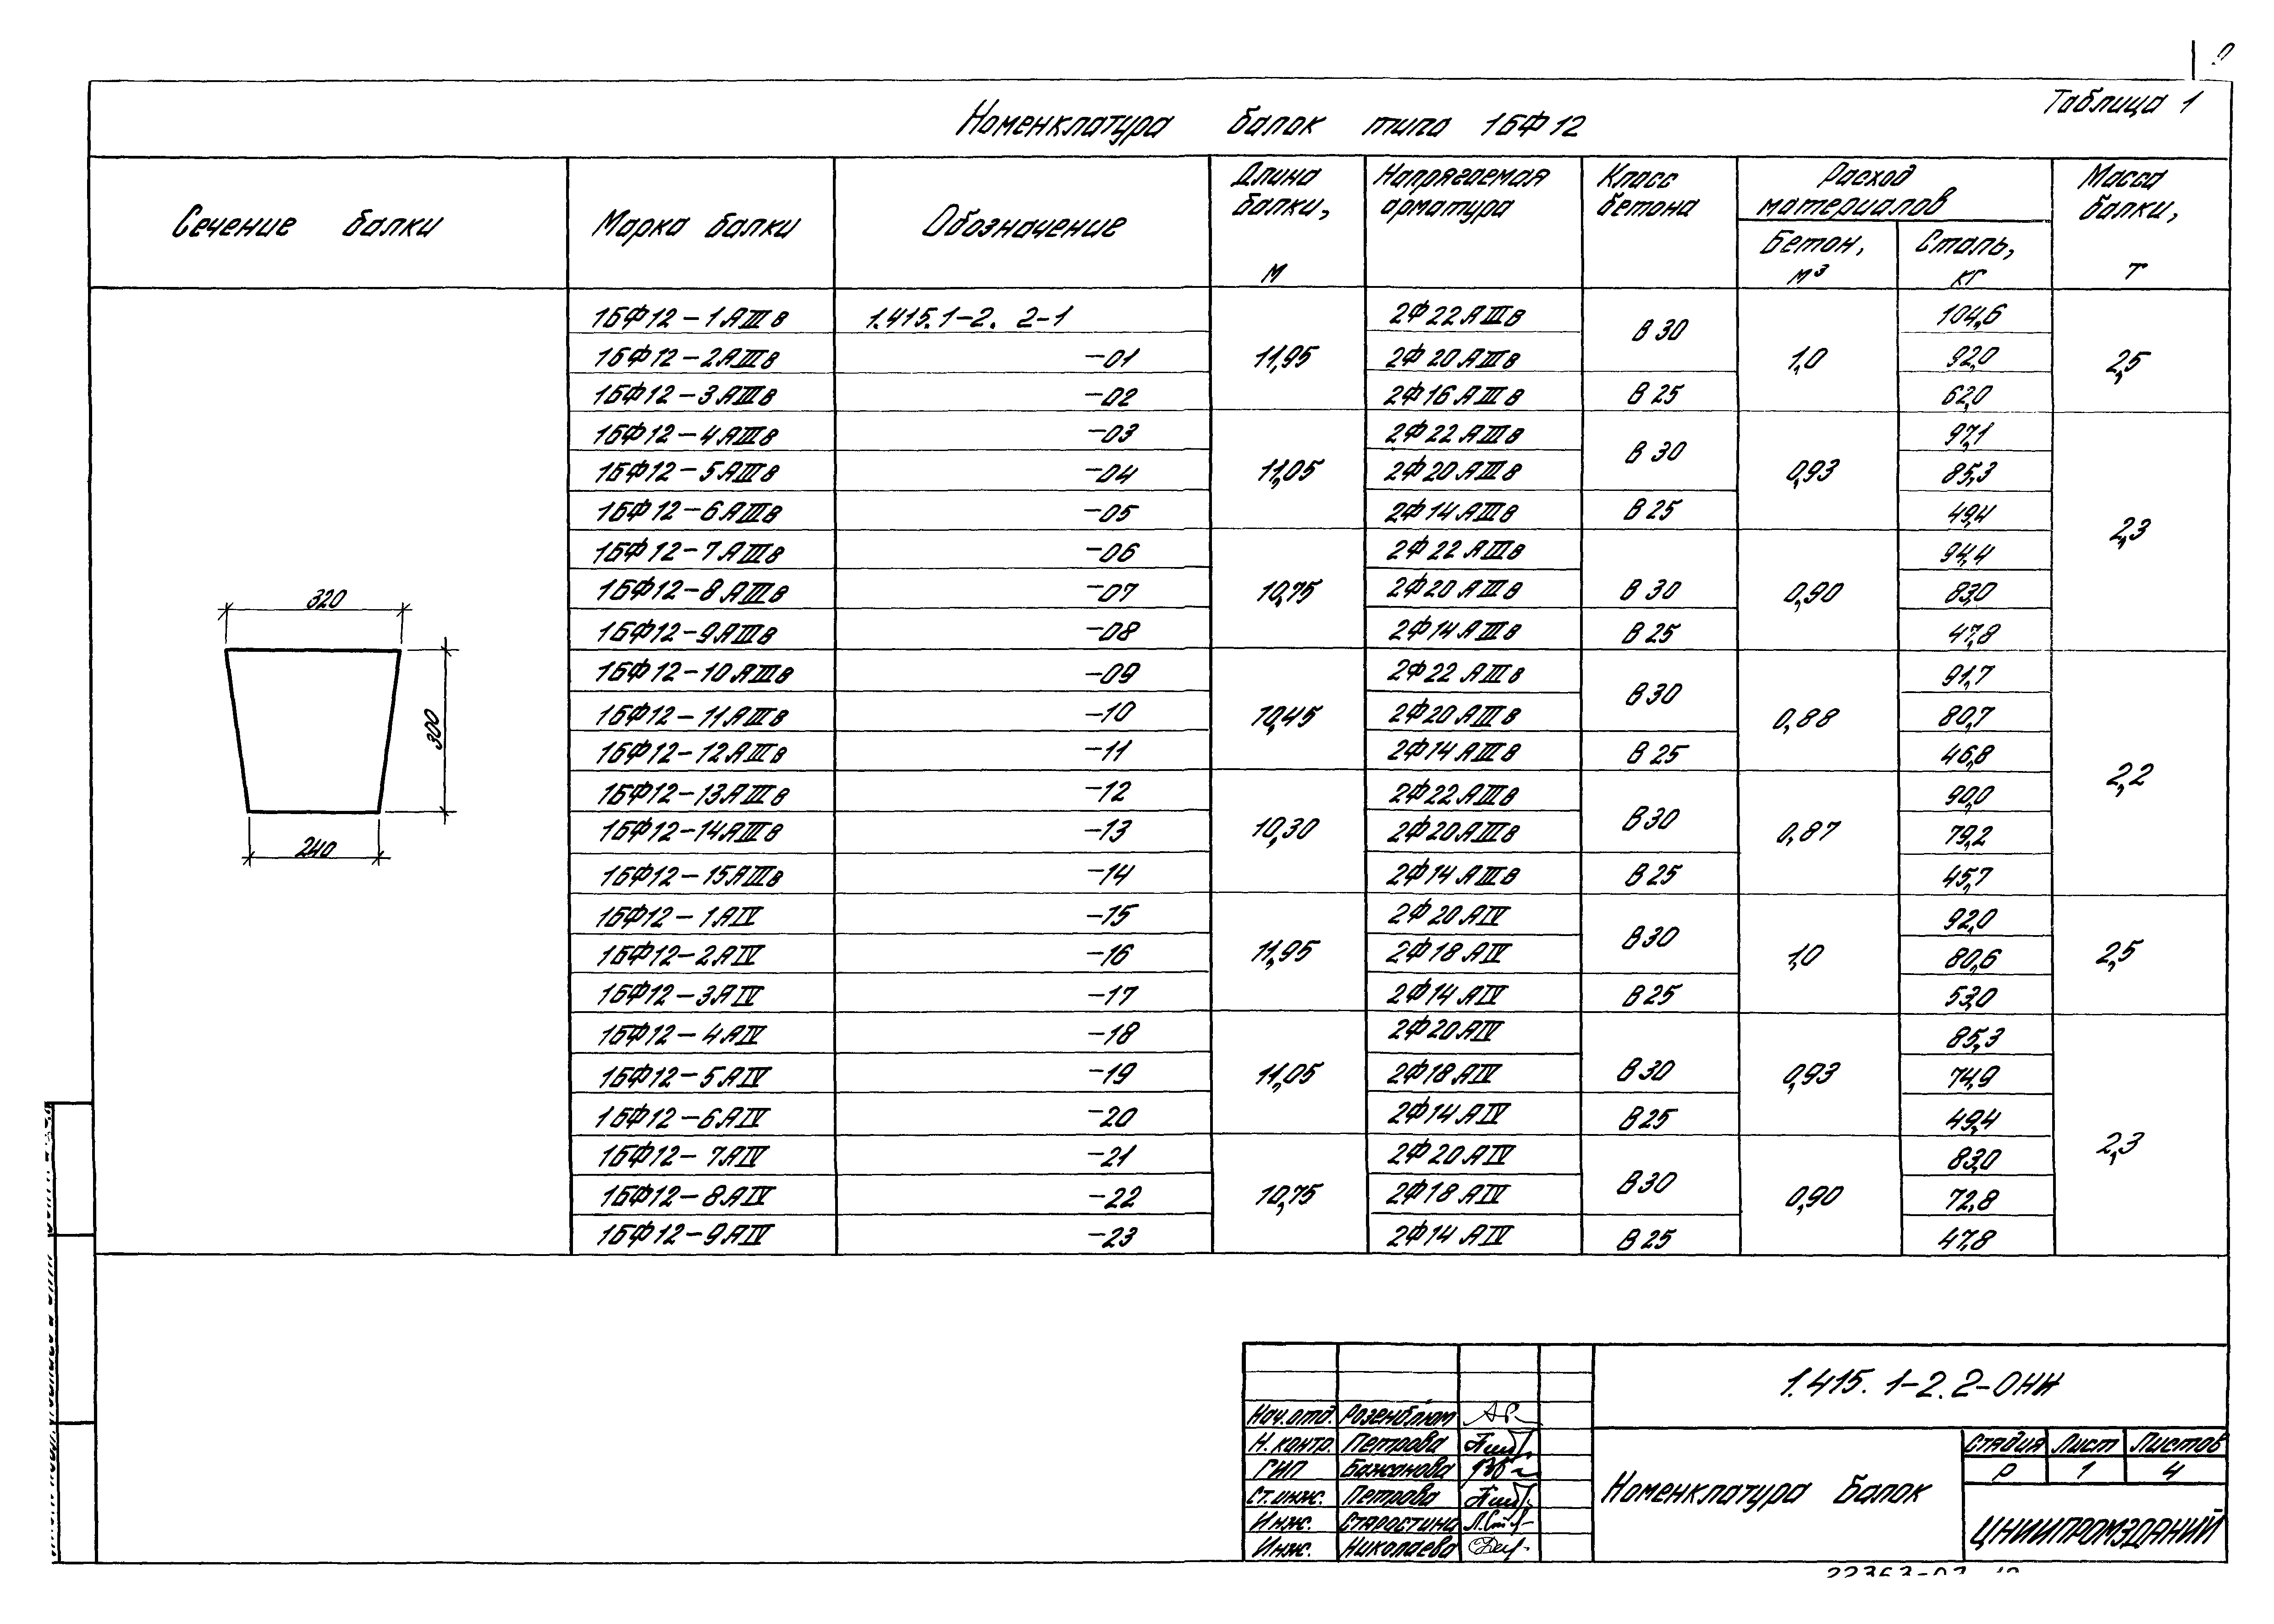 Таблица 1
Номенклатура балок типа 1БФ12
Сечение балки
Марка балки
Обозначение
Длина балки, м
Напрягаемая арматура
Класс бетона
Расход материалов
Бетон, м³
Сталь, кг
Масса балки, т
320
300
240
1БФ12-1АIIIв 1.415.1-2. 2-1 11,95 2Ф22АIIIв В30 1,0 104,6 2,5
1БФ12-2АIIIв -01 2Ф20АIIIв 92,0
1БФ12-3АIIIв -02 2Ф16АIIIв В25 62,0
1БФ12-4АIIIв -03 11,05 2Ф22АIIIв В30 0,93 97,1 2,3
1БФ12-5АIIIв -04 2Ф20АIIIв 85,3
1БФ12-6АIIIв -05 2Ф14АIIIв В25 49,4
1БФ12-7АIIIв -06 10,75 2Ф22АIIIв В30 0,90 94,4
1БФ12-8АIIIв -07 2Ф20АIIIв 83,0
1БФ12-9АIIIв -08 2Ф14АIIIв В25 47,8
1БФ12-10АIIIв -09 10,45 2Ф22АIIIв В30 0,88 91,7 2,2
1БФ12-11АIIIв -10 2Ф20АIIIв 80,7
1БФ12-12АIIIв -11 2Ф14АIIIв В25 46,8
1БФ12-13АIIIв -12 10,30 2Ф22АIIIв В30 0,87 90,0
1БФ12-14АIIIв -13 2Ф20АIIIв 79,2
1БФ12-15АIIIв -14 2Ф14АIIIв В25 45,7
1БФ12-1АIV -15 11,95 2Ф20АIV В30 1,0 92,0 2,5
1БФ12-2АIV -16 2Ф18АIV 80,6
1БФ12-3АIV -17 2Ф14АIV В25 53,0
1БФ12-4АIV -18 11,05 2Ф20АIV В30 0,93 85,3 2,3
1БФ12-5АIV -19 2Ф18АIV 74,9
1БФ12-6АIV -20 2Ф14АIV В25 49,4
1БФ12-7АIV -21 10,75 2Ф20АIV В30 0,90 83,0
1БФ12-8АIV -22 2Ф18АIV 72,8
1БФ12-9АIV -23 2Ф14АIV В25 47,8
1.415.1-2.2-0НН
Нач.отд. Розенблюм
Н.контр. Петрова
ГИП Бажанова
Ст.инж. Петрова
Инж. Старостина
Инж. Николаева
Номенклатура балок
Стадия Лист Листов
Р 1 4
ЦНИИПРОМЗДАНИЙ